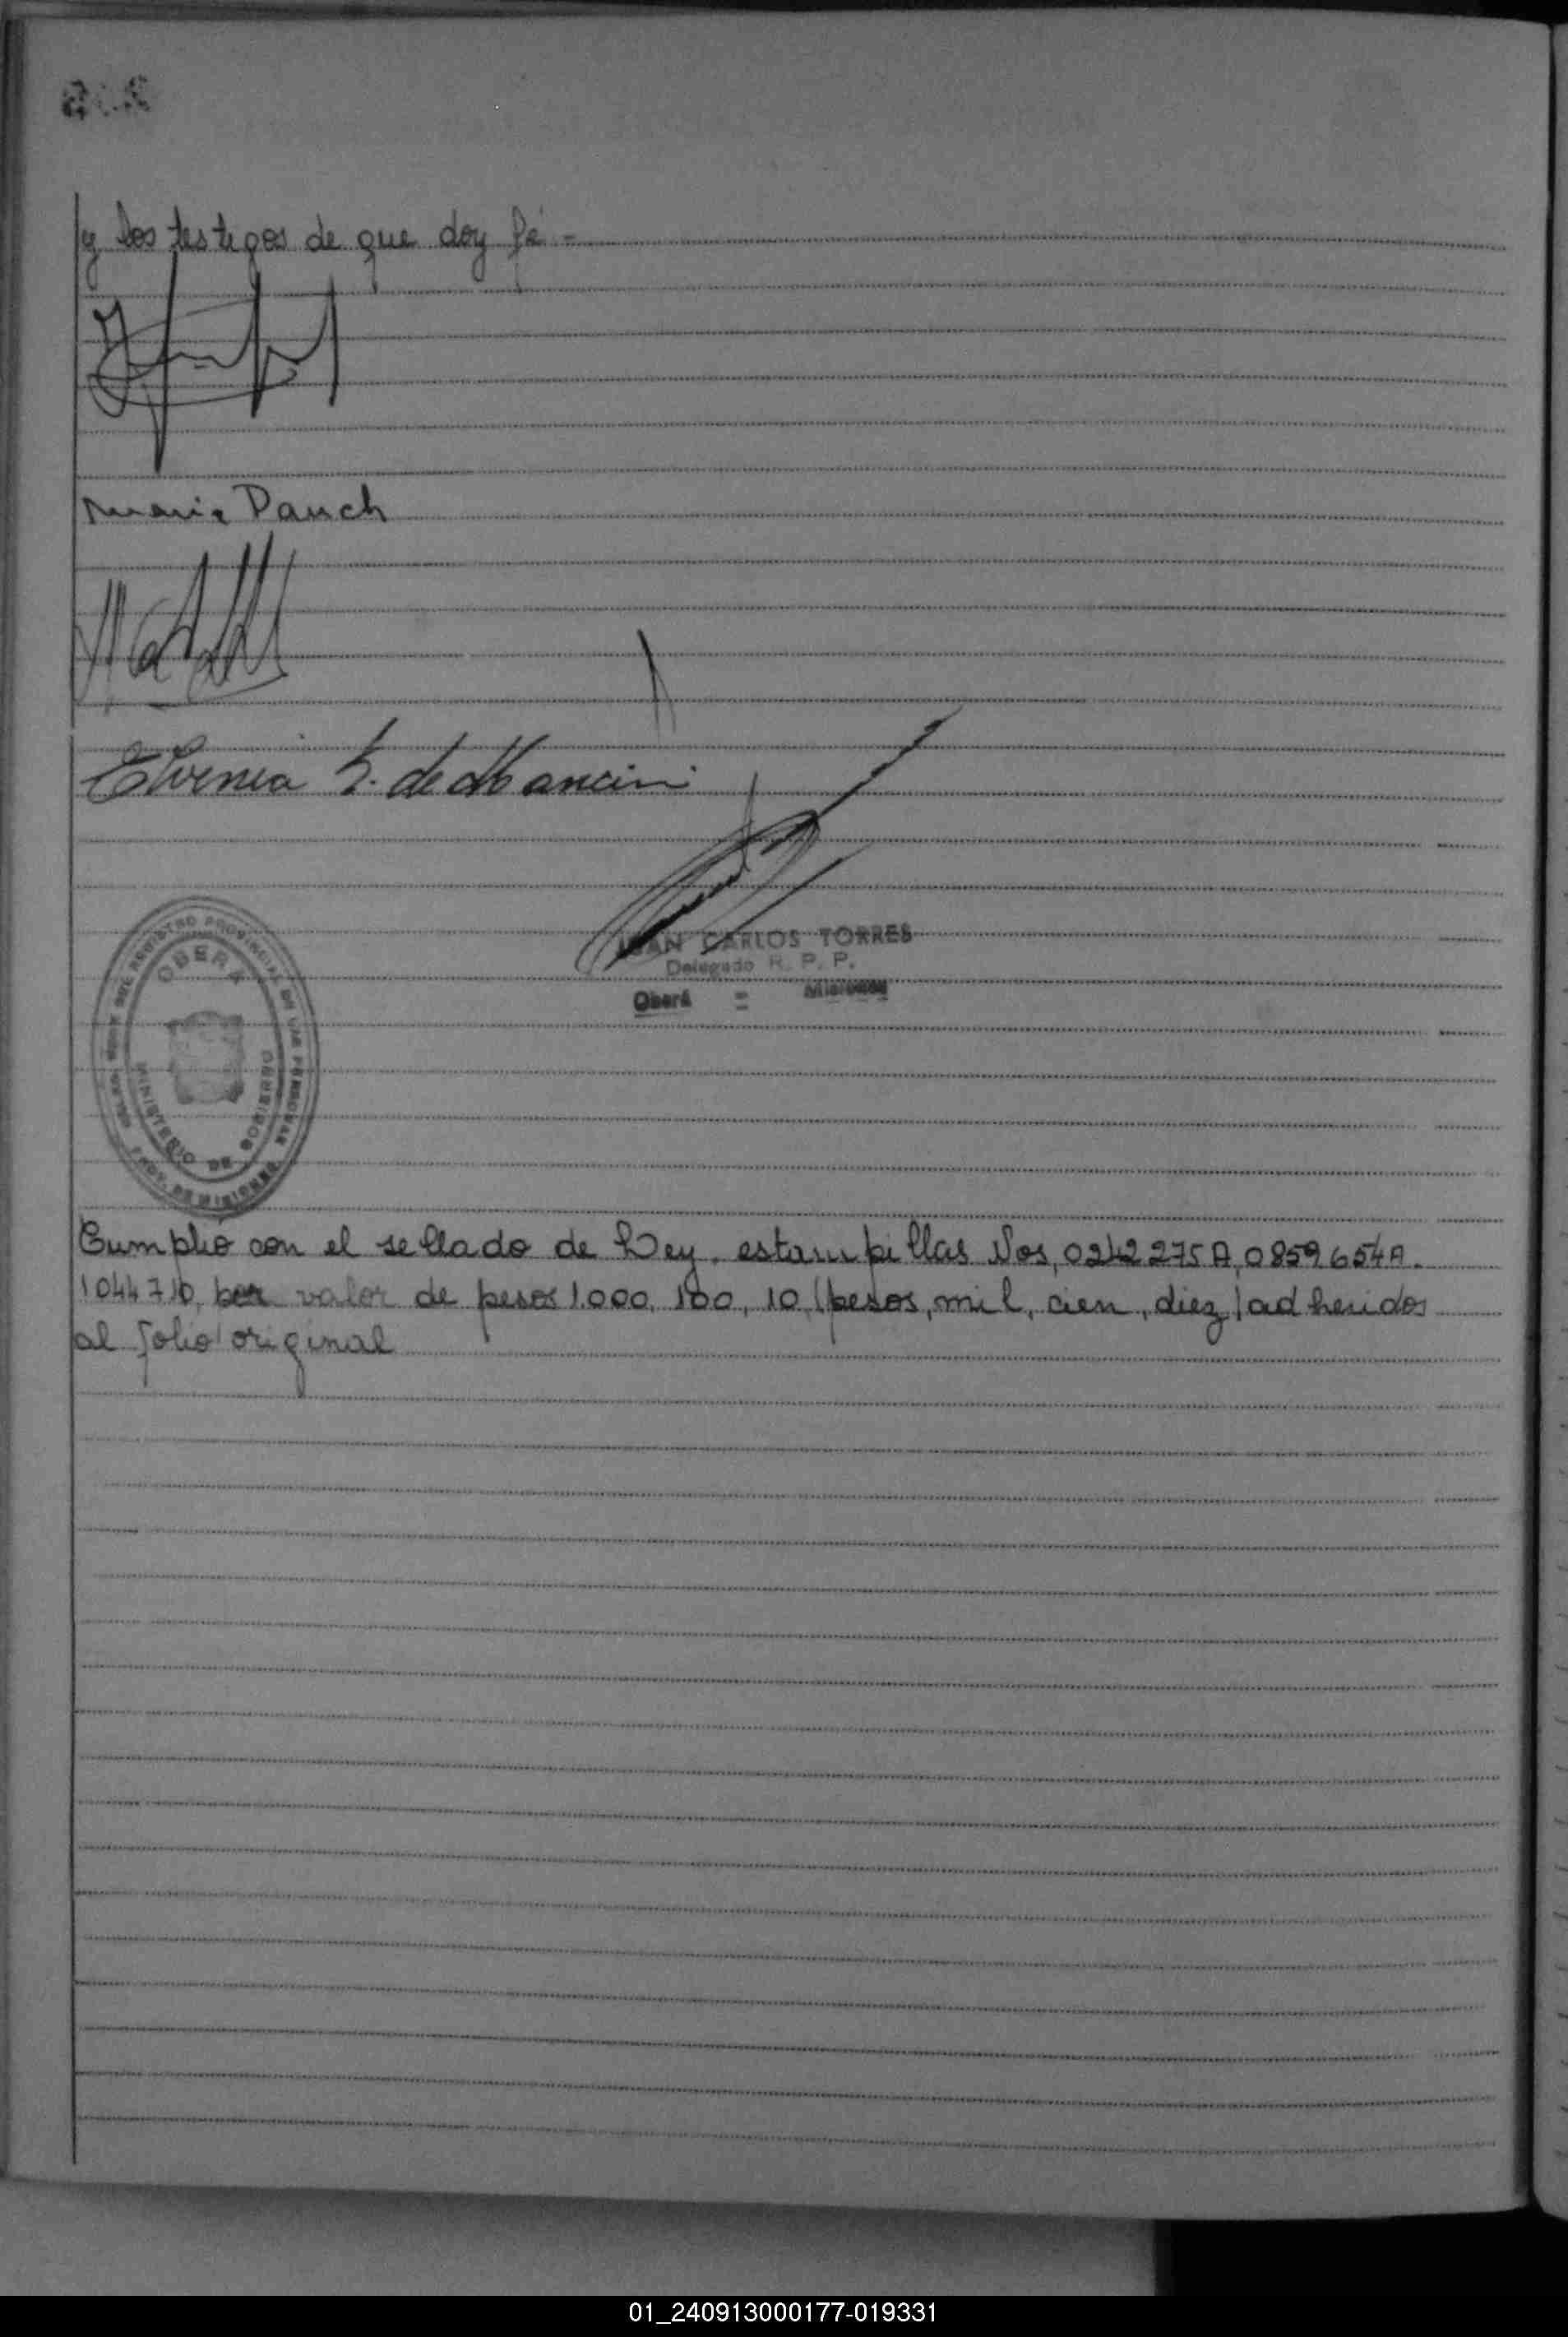 y los testigos de que doy fé -
Maria Dauch
Elvenia Z. de Mancini
JUAN CARLOS TORRES
Delegado R. P. P.
Oberá = Misiones
REGISTRO PROVINCIAL DE LAS PERSONAS
OBERA
MINISTERIO DE GOBIERNO
PROV. DE MISIONES
Cumplió con el sellado de Ley. estampillas Nos, 0242275A, 0859654A.
1044710, por valor de pesos 1.000, 100, 10, (pesos, mil, cien, diez) adheridos
al folio original
01_240913000177-019331